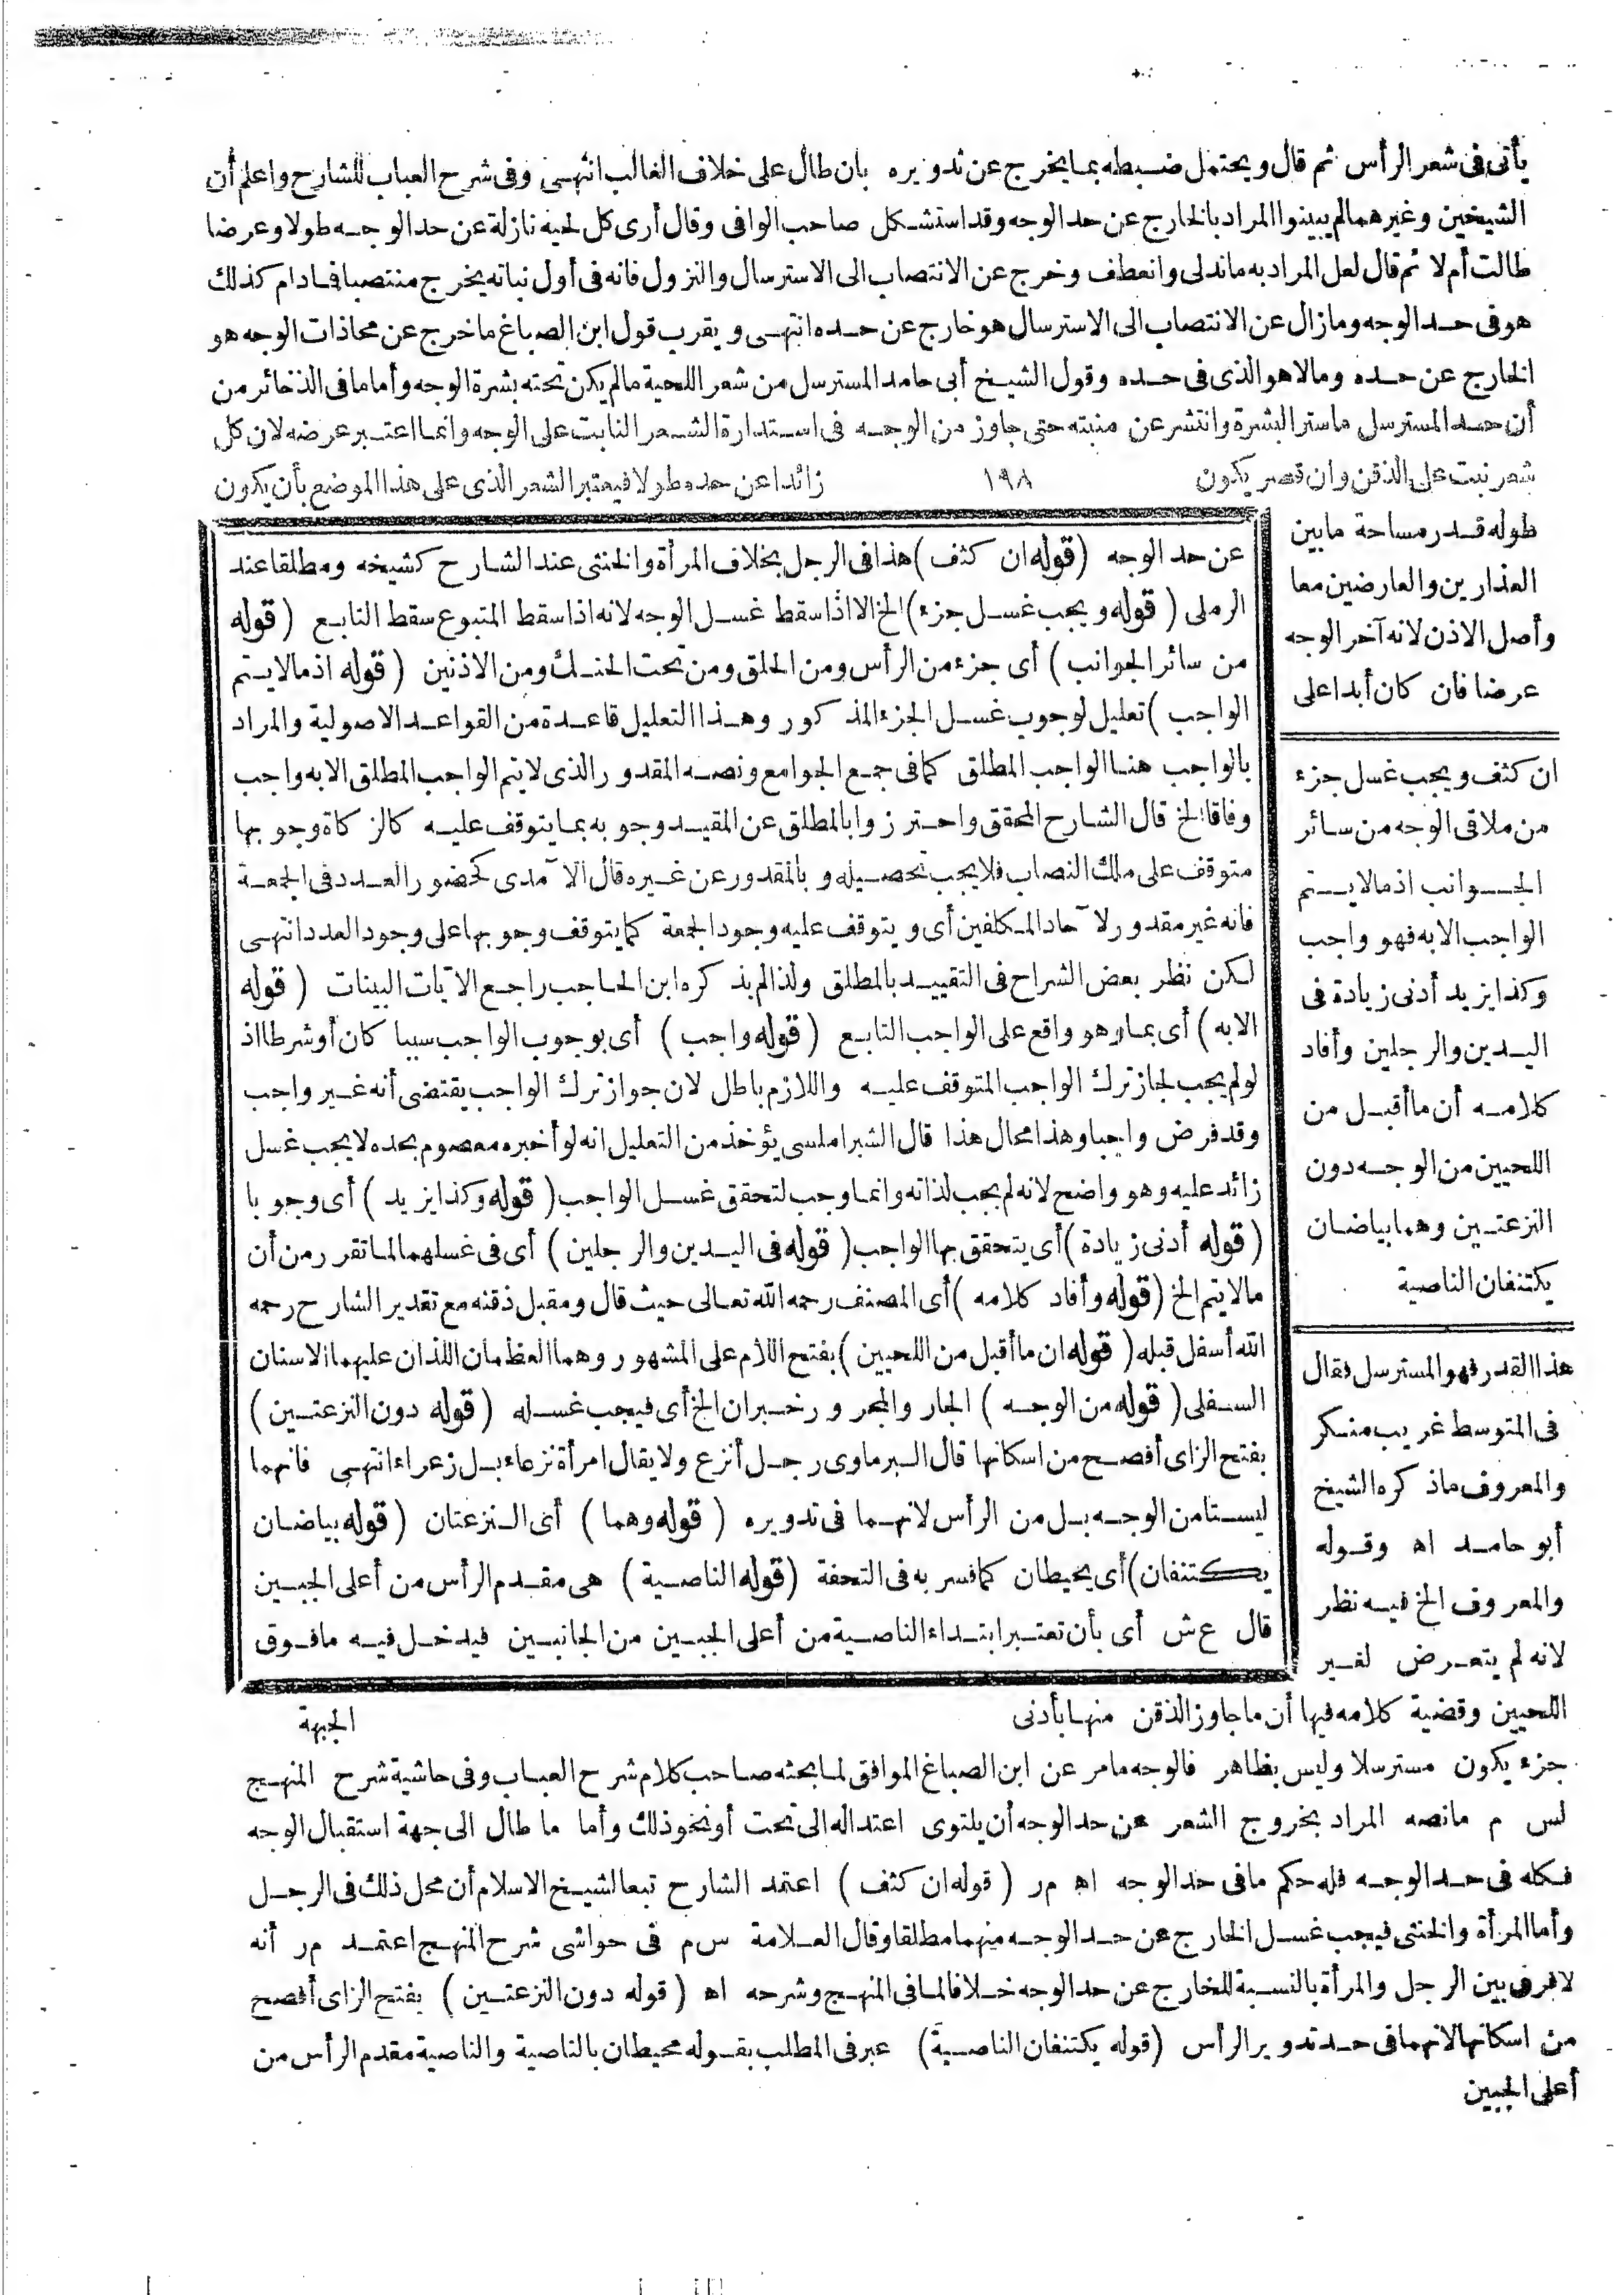 يأتى فى شعر الرأس ثم قال ويحتمل ضبطه بما يخرج عن تدويره بان طال على خلاف الغالب انتهى وفى شرح العباب للشارح واعلم أن
الشيخين وغيرهما لم يبينوا المراد بالخارج عن حد الوجه وقد استشكل صاحب الوافى وقال أرى كل لحية نازلة عن حد الوجه طولا وعرضا
طالت أم لا ثم قال لعل المراد به ما تدلى وانعطف وخرج عن الانتصاب الى الاسترسال والنزول فانه فى أول نباته يخرج منتصبا فمادام كذلك
هو فى حد الوجه ومازال عن الانتصاب الى الاسترسال هو خارج عن حده انتهى ويقرب قول ابن الصباغ ما خرج عن محاذات الوجه هو
الخارج عن حده ومالا هو الذى فى حده وقول الشيخ أبى حامد المسترسل من شعر اللحية مالم يكن تحته بشرة الوجه وأما ما فى الذخائر من
أن حد المسترسل ماستر البشرة وانتشر عن منبته حتى جاوز من الوجه فى استدارة الشعر النابت على الوجه وانما اعتبر عرضه لان كل
شعر نبت على الذقن وان قصر يكون زائدا عن حده طولا فيعتبر الشعر الذى على هذا الموضع بأن يكون
١٩٨
طوله قدر مساحة مابين
العذارين والعارضين معا
وأصل الاذن لانه آخر الوجه
عرضا فان كان أبدا على
ان كثف ويجب غسل جزء
من ملاقى الوجه من سائر
الجوانب اذ مالا يتم
الواجب الا به فهو واجب
وكذا يزيد أدنى زيادة فى
اليدين والرجلين وأفاد
كلامه أن ما أقبل من
اللحيين من الوجه دون
النزعتين وهما بياضان
يكتنفان الناصية
هذا القدر فهو المسترسل فقال
فى المتوسط غريب منكر
والمعروف ماذكره الشيخ
أبو حامد اه وقوله
والمعروف الخ فيه نظر
لانه لم يتعرض لغير
عن حد الوجه (قوله ان كثف) هذا فى الرجل بخلاف المرأة والخنثى عند الشارح كشيخه ومطلقا عند
الرملى (قوله ويجب غسل جزء) الخ الا اذا سقط غسل الوجه لانه اذا سقط المتبوع سقط التابع (قوله
من سائر الجوانب) أى جزء من الرأس ومن الحلق ومن تحت الحنك ومن الاذنين (قوله اذ مالا يتم
الواجب) تعليل لوجوب غسل الجزء المذكور وهذا التعليل قاعدة من القواعد الاصولية والمراد
بالواجب هنا الواجب المطلق كما فى جمع الجوامع ونصه المقدور الذى لا يتم الواجب المطلق الا به واجب
وفاقا الخ قال الشارح المحقق واحترزوا بالمطلق عن المقيد وجوبه بما يتوقف عليه كالزكاة وجوبها
متوقف على ملك النصاب فلا يجب تحصيله وبالمقدور عن غيره قال الآمدى كحضور العدد فى الجمعة
فانه غير مقدور لآحاد المكلفين أى ويتوقف عليه وجود الجمعة كما يتوقف وجوبها على وجود العدد انتهى
لكن نظر بعض الشراح فى التقييد بالمطلق ولذا لم يذكره ابن الحاجب راجع الآيات البينات (قوله
الا به) أى بما هو واقع على الواجب التابع (قوله واجب) أى بوجوب الواجب سببا كان أو شرطا اذ
لو لم يجب لجاز ترك الواجب المتوقف عليه واللازم باطل لان جواز ترك الواجب يقتضى أنه غير واجب
وقد فرض واجبا وهذا محال هذا قال الشبراملسى يؤخذ من التعليل انه لو أخبره معصوم بحده لا يجب غسل
زائد عليه وهو واضح لانه لم يجب لذاته وانما وجب لتحقق غسل الواجب (قوله وكذا يزيد) أى وجوبا
(قوله أدنى زيادة) أى يتحقق بها الواجب (قوله فى اليدين والرجلين) أى فى غسلهما لما تقرر من أن
مالا يتم الخ (قوله وأفاد كلامه) أى المصنف رحمه الله تعالى حيث قال ومقبل ذقنه مع تقدير الشارح رحمه
الله أسفل قبله (قوله ان ما أقبل من اللحيين) بفتح اللام على المشهور وهما العظمان اللذان عليهما الاسنان
السفلى (قوله من الوجه) الجار والمجرور خبر ان الخ أى فيجب غسله (قوله دون النزعتين)
بفتح الزاى أفصح من اسكانها قال البرماوى رجل أنزع ولا يقال امرأة نزعاء بل زعراء انتهى فانهما
ليستا من الوجه بل من الرأس لانهما فى تدويره (قوله وهما) أى النزعتان (قوله بياضان
يكتنفان) أى يحيطان كما فسر به فى التحفة (قوله الناصية) هى مقدم الرأس من أعلى الجبين
قال ع ش أى بأن تعتبر ابتداء الناصية من أعلى الجبين من الجانبين فيدخل فيه مافوق
الجبهة
اللحيين وقضية كلامه فيها أن ما جاوز الذقن منها بأدنى
جزء يكون مسترسلا وليس بظاهر فالوجه مامر عن ابن الصباغ الموافق لما بحثه صاحب كلام شرح العباب وفى حاشية شرح المنهج
لس م مانصه المراد بخروج الشعر عن حد الوجه أن يلتوى اعتداله الى تحت أو نحو ذلك وأما ما طال الى جهة استقبال الوجه
فكله فى حد الوجه فله حكم مافى حد الوجه اه م ر (قوله ان كثف) اعتمد الشارح تبعا لشيخ الاسلام أن محل ذلك فى الرجل
وأما المرأة والخنثى فيجب غسل الخارج عن حد الوجه منهما مطلقا وقال العلامة س م فى حواشى شرح المنهج اعتمد م ر أنه
لا فرق بين الرجل والمرأة بالنسبة للخارج عن حد الوجه خلافا لما فى المنهج وشرحه اه (قوله دون النزعتين) بفتح الزاى أفصح
من اسكانها لانهما فى حد تدوير الرأس (قوله يكتنفان الناصية) عبر فى المطلب بقوله محيطان بالناصية والناصية مقدم الرأس من
أعلى الجبين